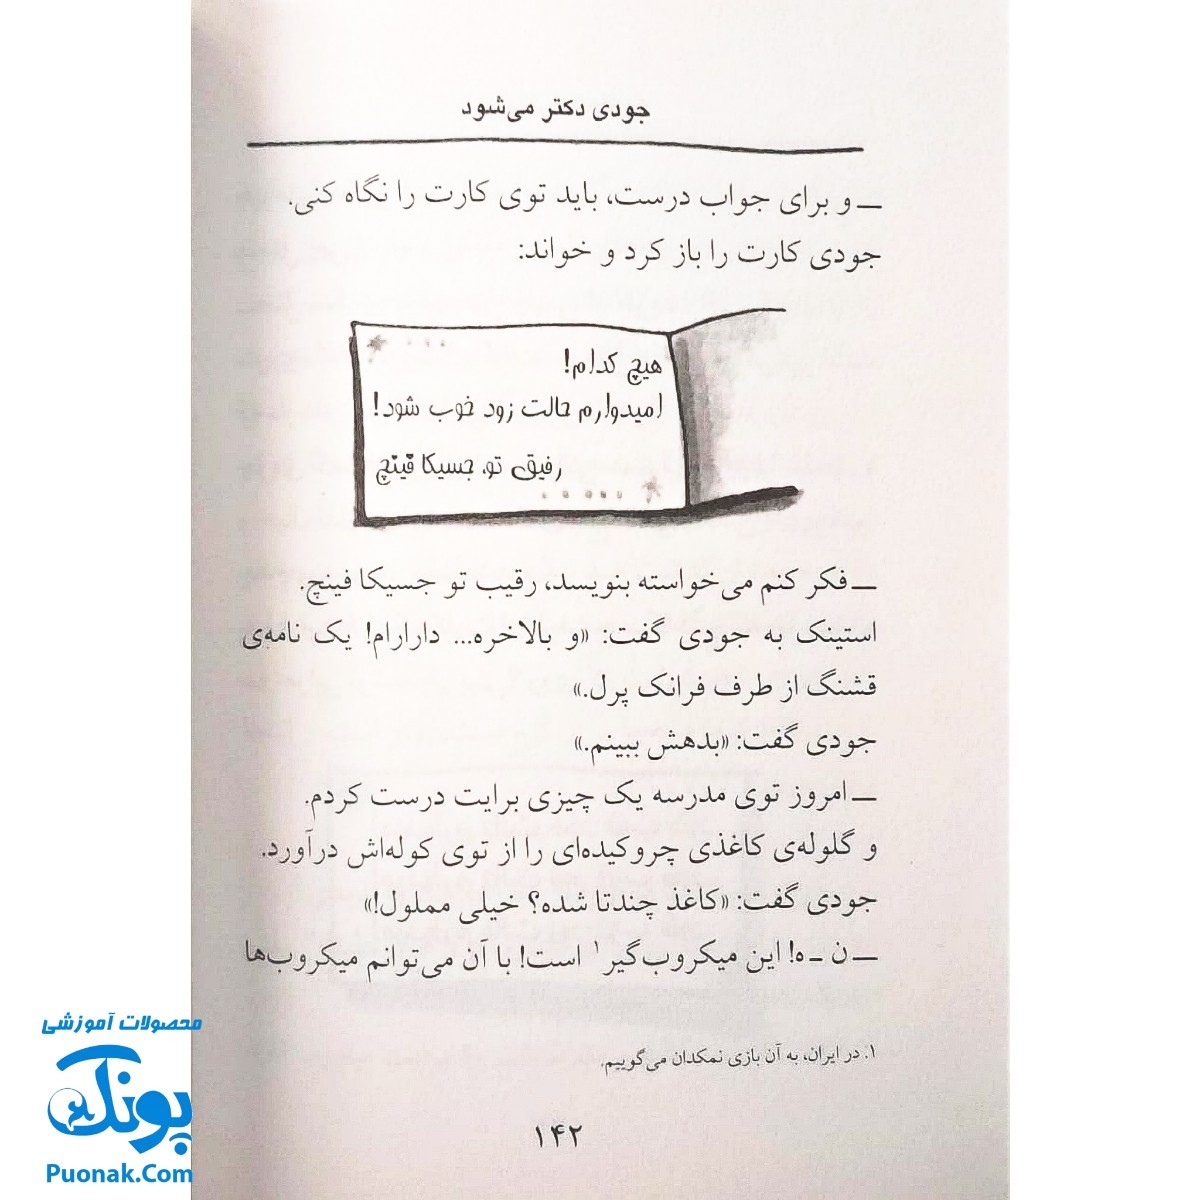 جودی دکتر می‌شود
ـ و برای جواب درست، باید توی کارت را نگاه کنی.
جودی کارت را باز کرد و خواند:
هیچ کدام!
امیدوارم حالت زود خوب شود!
رفیق تو، جسیکا فینچ
ـ فکر کنم می‌خواسته بنویسد، رقیب تو جسیکا فینچ.
استینک به جودی گفت: «و بالاخره... دارارام! یک نامه‌ی
قشنگ از طرف فرانک پرل.»
جودی گفت: «بدهش ببینم.»
ـ امروز توی مدرسه یک چیزی برایت درست کردم.
و گلوله‌ی کاغذی چروکیده‌ای را از توی کوله‌اش درآورد.
جودی گفت: «کاغذ چندتا شده؟ خیلی مملول!»
ـ ن ـ ه! این میکروب‌گیر۱ است! با آن می‌توانم میکروب‌ها
۱. در ایران، به آن بازی نمکدان می‌گوییم.
۱۴۲
محصولات آموزشی
پونک
Puonak.Com